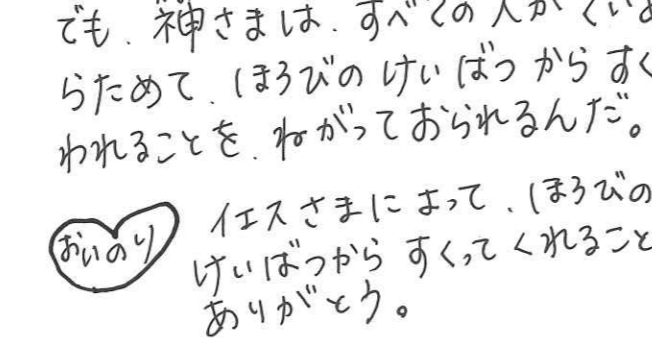 でも、神さまは、すべての人がくいあ
らためて、ほろびのけいばつからすく
われることを、ねがっておられるんだ。
おいのり
イエスさまによって、ほろびの
けいばつからすくってくれること
ありがとう。